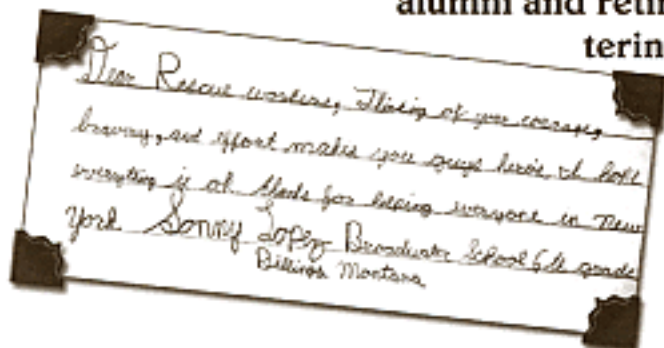 alumni and retir
terin
Dear Rescue workers, Thinking of your courage,
bravery, and effort makes you guys heros, I hope
everything is ok thanks for helping everyone in New
York Sonny Lopez Broadwater School 6th grade
Billings Montana